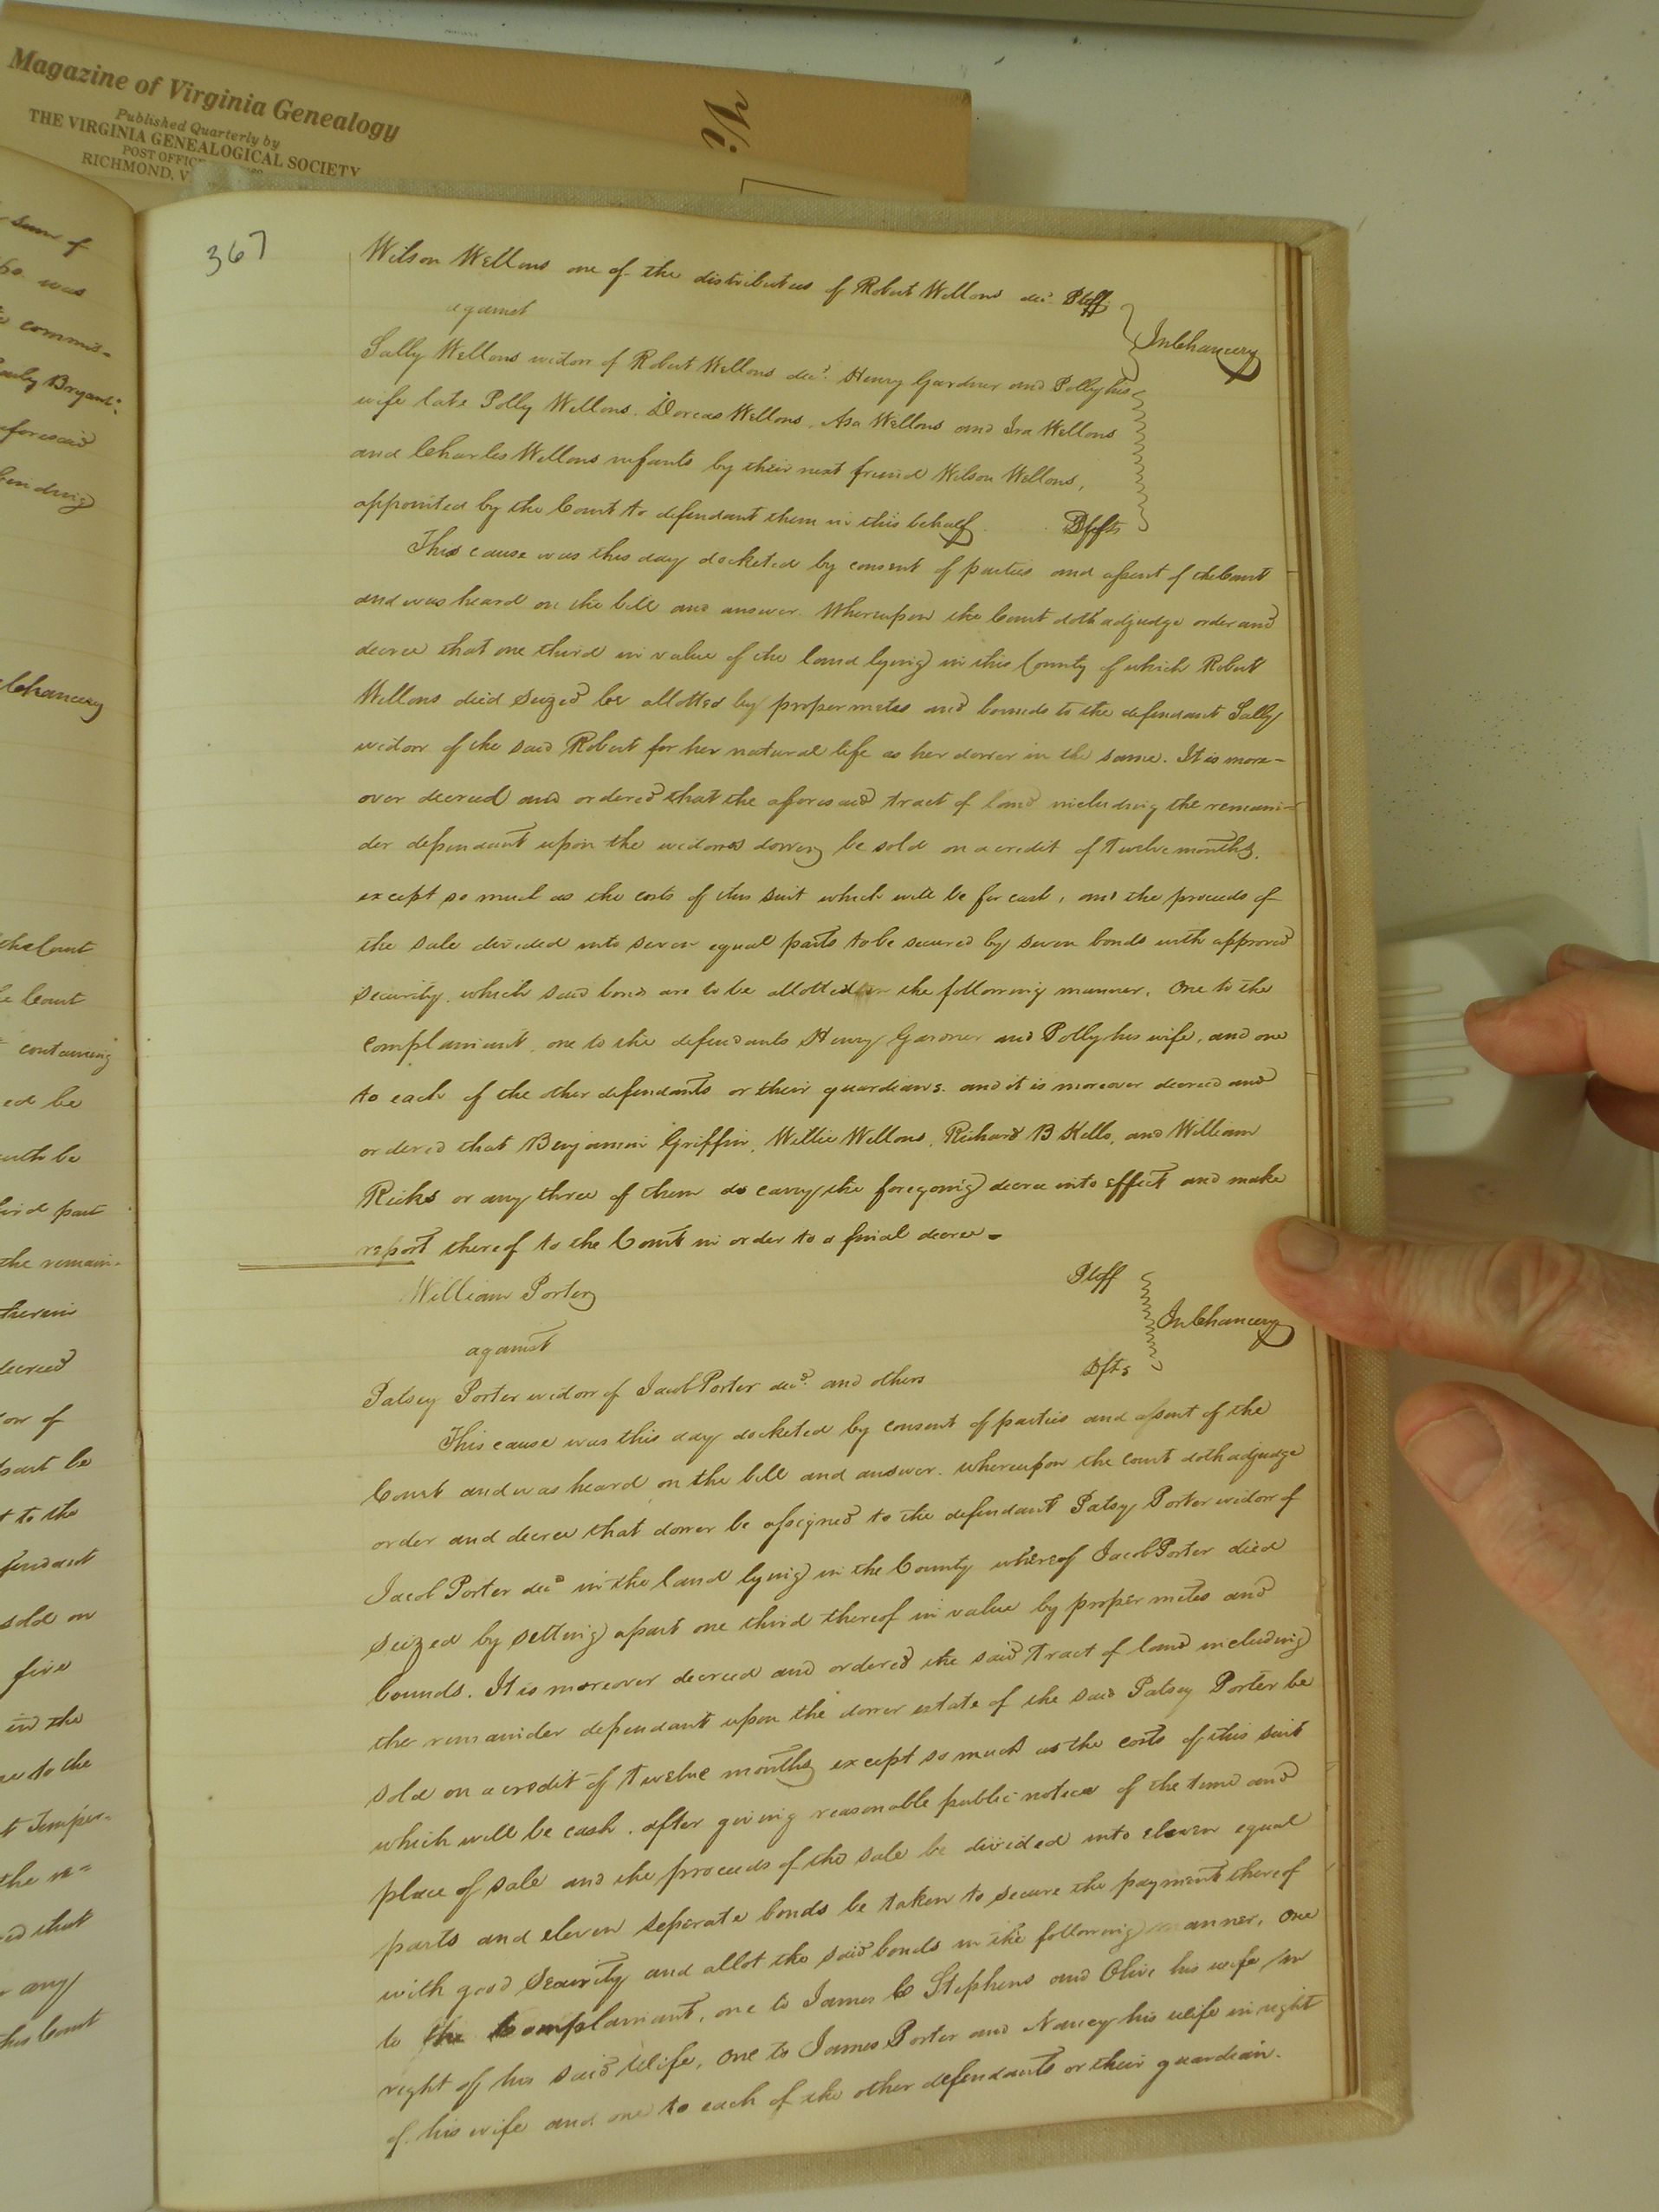 Magazine of Virginia Genealogy
Published Quarterly by
THE VIRGINIA GENEALOGICAL SOCIETY
POST OFFIC
RICHMOND, V
Vi
sum of
was
commis-
Bryant
aforesaid
Chancery
the Court
Court
containing
ed be
be
part
the remain-
therein
decreed
of
part be
t to the
fendant
sold on
five
in the
to the
the re=
ed that
any
Court
367
Wilson Wellons one of the distributees of Robert Wellons decd. Pltff.
against
In Chancery
Sally Wellons widow of Robert Wellons decd. Henry Gardner and Polly his
wife late Polly Wellons. Dorcas Wellons, Asa Wellons and Ira Wellons
and Charles Wellons infants by their next friend Wilson Wellons,
appointed by the Court to defendant them in this behalf. Dfts
This cause was this day docketed by consent of parties and assent of the Court
and was heard on the bill and answer. Whereupon the Court doth adjudge order and
decree that one third in value of the land lying in this County of which Robert
Wellons died seized be allotted by proper metes and bounds to the defendant Sally
widow of the said Robert for her natural life as her dower in the same. It is more-
over decreed and ordered that the aforesaid tract of land including the remain=
der dependant upon the widows dower, be sold on a credit of twelve months,
except so much as the costs of this suit which will be for cash, and the proceeds of
the sale divided into seven equal parts to be secured by seven bonds with approved
security. which said bonds are to be allotted in the following manner. One to the
complainant, one to the defendants Henry Gardner and Polly his wife, and one
to each of the other defendants or their guardians. and it is moreover decreed and
ordered that Benjamin Griffin, Willie Wellons, Richard B Kello, and William
Ricks or any three of them do carry the foregoing decree into effect and make
report thereof to the Court in order to a final decree-
William Porter
Pltff
against
In Chancery
Patsey Porter widow of Jacob Porter decd. and others
Dfts
This cause was this day docketed by consent of parties and assent of the
Court and was heard on the bill and answer. whereupon the court doth adjudge
order and decree that dower be assigned to the defendant Patsy Porter widow of
Jacob Porter decd in the land lying in the County whereof Jacob Porter died
seized by setting apart one third thereof in value by proper metes and
bounds. It is moreover decreed and ordered the said tract of land including
the remainder dependant upon the dower estate of the said Patsey Porter be
sold on a credit of twelve months except so much as the costs of this suit
which will be cash. after giving reasonable public notice of the time and
place of sale and the proceeds of the sale be divided into eleven equal
parts and eleven seperate bonds be taken to secure the payment thereof
with good security and allot the said bonds in the following manner, One
to the Complainant, one to James C Stephens and Olive his wife in
right of his said Wife, one to James Porter and Nancy his wife in right
of his wife and one to each of the other defendants or their guardian.